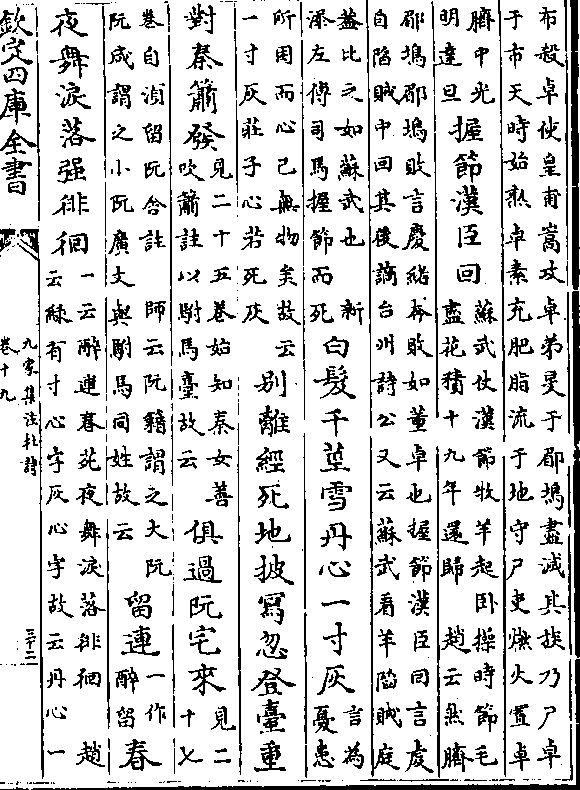 布殺卓使皇甫嵩攻卓弟旻于郿塢盡滅其族乃尸卓
于市天時始熱卓素充肥脂流于地守尸吏燃火置卓
臍中光
明達旦
握節漢臣回
蘇武仗漢節牧羊起卧操時節毛
盡花積十九年還歸 趙云燃臍
郿塢郿塢敗言慶緒奔敗如董卓也握節漢臣回言虔
自陷賊中回其後謫台州詩公又云蘇武看羊陷賊庭
蓋比之如蘇武也 新
添左傳司馬握節而死
白髮千莖雪丹心一寸灰
言為
憂患
所用而心已無物矣故云
一寸灰莊子心若死灰
别離經死地披寫忽登臺重
對秦簫發
見二十五卷始知秦女善
吹簫註以駙馬臺故云
俱過阮宅來
見二
十七
卷自湏留阮舍註 師云阮籍謂之大阮
阮咸謂之小阮廣文與駙馬同姓故云
留連
一作
醉留
春
夜舞淚落强徘徊
一云醉連春苑夜舞淚落徘徊 趙
云練有寸心字灰心字故云丹心一
欽定四庫全書
九家集注杜詩
卷十九
三十三